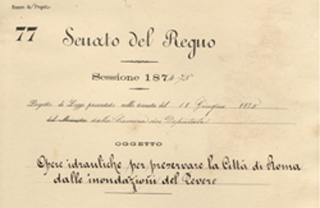 77
Senato del Regno
Sessione 1874-75
Progetto di Legge presentato nella tornata del 18 Giugno 1875
dal Ministro dalla Camera dei Deputati
OGGETTO
Opere idrauliche per preservare la Città di Roma
dalle inondazioni del Tevere